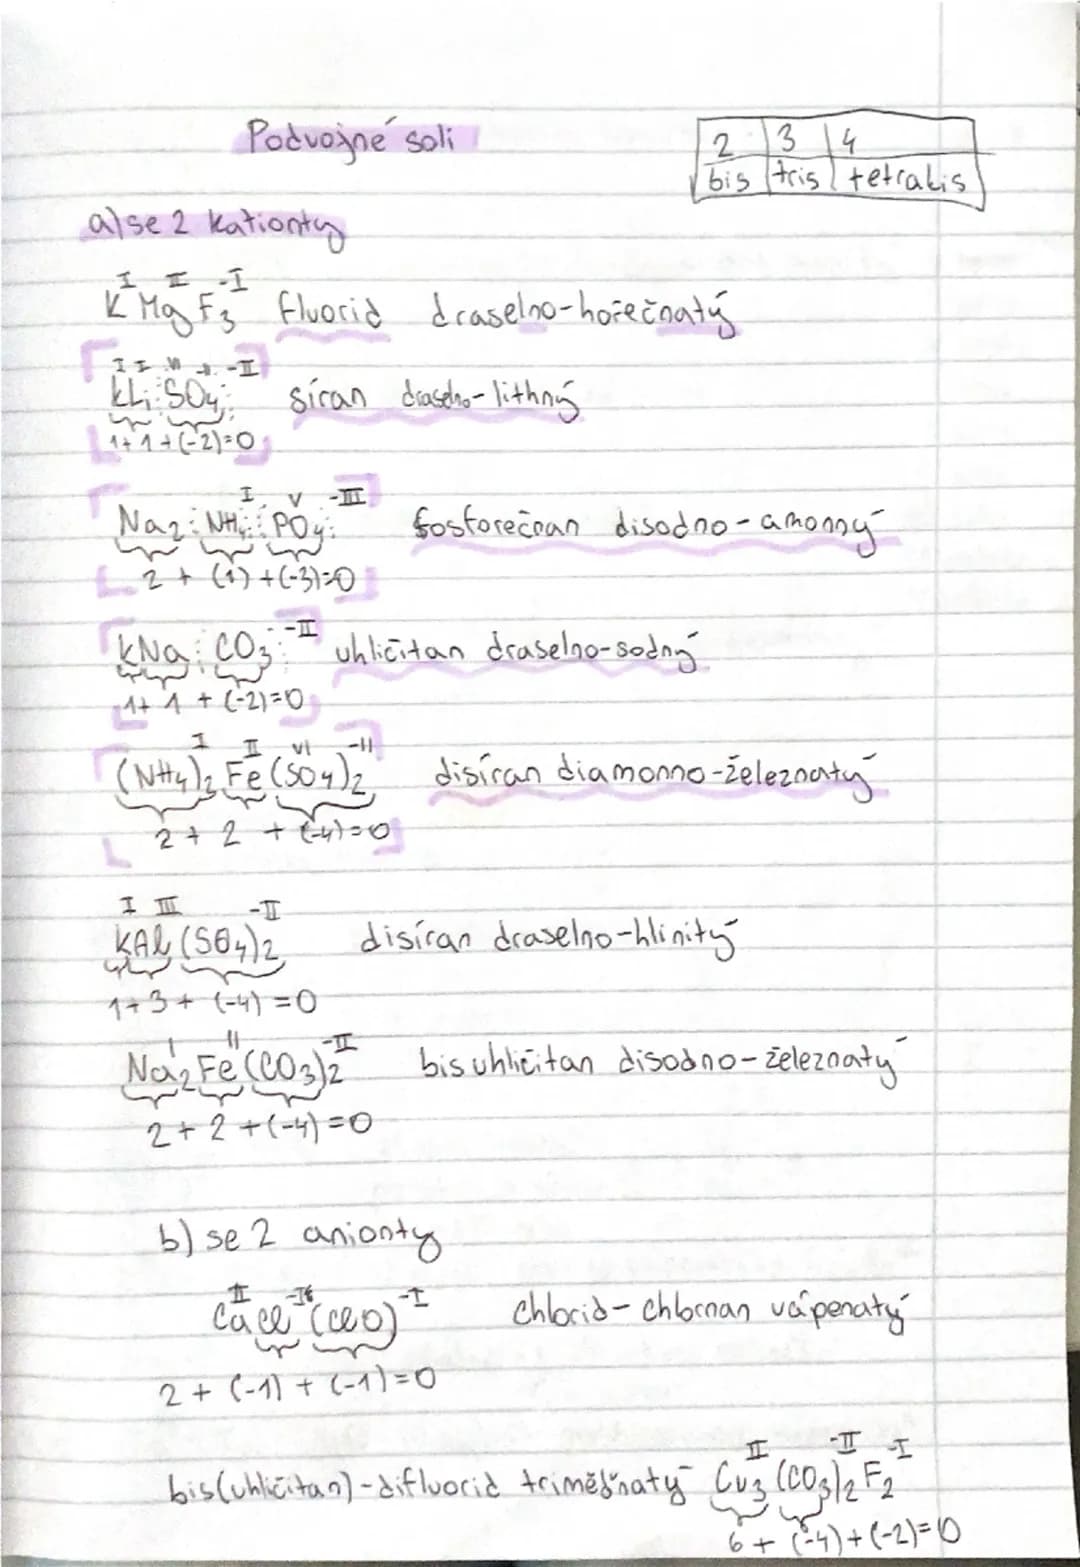 Podvojné soli
2 3 4
bis tris tetrakis
a) se 2 kationty
I II -I
K Mg F₃ fluorid draselno-hořečnatý
I I VI -II -II
KLi SO₄ síran draselno-lithný
1+1+(-2)=0
I V -III
Na₂ NH₄ PO₄ fosforečnan disodno-amonný
2 + (1) + (-3)=0
KNa CO₃ -II uhličitan draselno-sodný
1+ 1 + (-2)=0
I II VI -II
(NH₄)₂ Fe (SO₄)₂ disíran diamonno-železnatý
2 + 2 + (-4)=0
I III -II
KAl (SO₄)₂ disíran draselno-hlinitý
1+3+ (-4) =0
I II -II
Na₂ Fe (CO₃)₂ bisuhličitan disodno-železnatý
2+ 2 +(-4)=0
b) se 2 anionty
II -I -I
CaCl (ClO) chlorid-chlornan vápenatý
2 + (-1) + (-1)=0
II -II -I
bis(uhličitan)-difluorid triměďnatý Cu₃ (CO₃)₂ F₂
6+ (-4)+(-2)=0